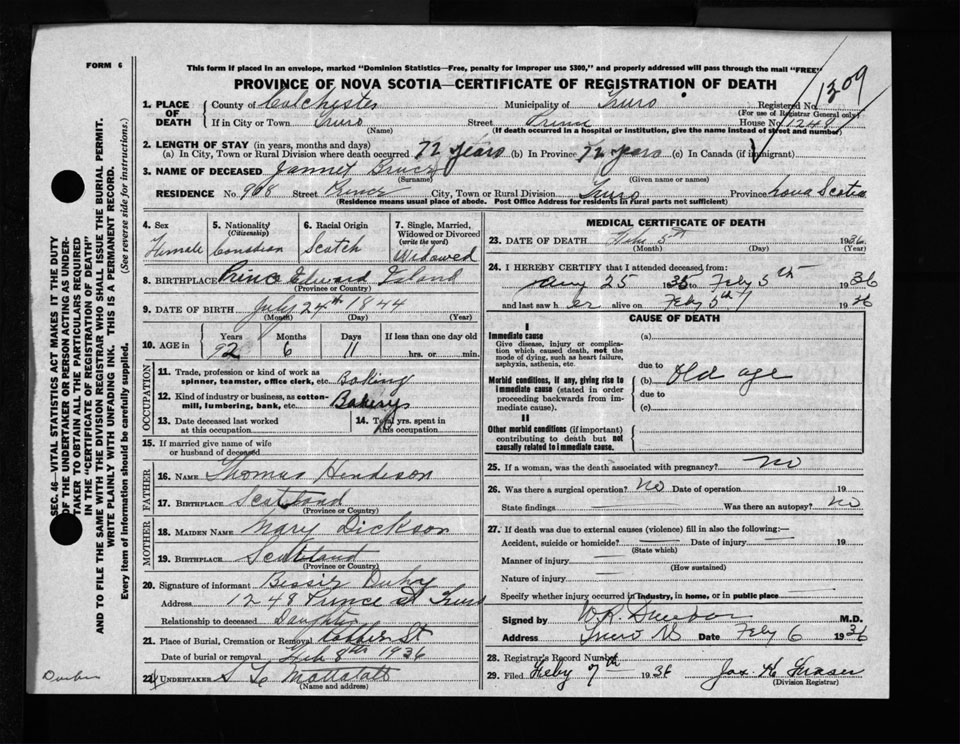 FORM 6
This form if placed in an envelope, marked "Dominion Statistics—Free, penalty for improper use $300," and properly addressed will pass through the mail "FREE"
PROVINCE OF NOVA SCOTIA—CERTIFICATE OF REGISTRATION OF DEATH
1209
1. PLACE OF DEATH County of Colchester Municipality of Truro Registered No.
(For use of Registrar General only)
If in City or Town Truro Street Prince House No. 1248
(Name) (If death occurred in a hospital or institution, give the name instead of street and number)
2. LENGTH OF STAY (in years, months and days)
(a) In City, Town or Rural Division where death occurred 72 years (b) In Province 72 years (c) In Canada (if immigrant)
3. NAME OF DECEASED Jannet Bruce
(Surname) (Given name or names)
RESIDENCE No. 908 Street Prince City, Town or Rural Division Truro Province Nova Scotia
(Residence means usual place of abode. Post Office Address for residents in rural parts not sufficient)
4. Sex Female
5. Nationality (Citizenship) Canadian
6. Racial Origin Scotch
7. Single, Married, Widowed or Divorced (write the word) Widowed
8. BIRTHPLACE Prince Edward Island
(Province or Country)
9. DATE OF BIRTH July 24th 1844
(Month) (Day) (Year)
10. AGE in Years Months Days If less than one day old
92 6 11 hrs. or min.
OCCUPATION
11. Trade, profession or kind of work as spinner, teamster, office clerk, etc. Baking
12. Kind of industry or business, as cotton-mill, lumbering, bank, etc. Bakerys
13. Date deceased last worked at this occupation
14. Total yrs. spent in this occupation
15. If married give name of wife or husband of deceased
FATHER
16. NAME Thomas Hindeson
17. BIRTHPLACE Scotland
(Province or Country)
MOTHER
18. MAIDEN NAME Mary Dickson
19. BIRTHPLACE Scotland
(Province or Country)
20. Signature of informant Bessie
Address 1248 Prince St Truro
Relationship to deceased Daughter
21. Place of Burial, Cremation or Removal St
Date of burial or removal Feb 8th 1936
22. UNDERTAKER S
(Name and address)
MEDICAL CERTIFICATE OF DEATH
23. DATE OF DEATH Feb 5th 1936
(Month) (Day) (Year)
24. I HEREBY CERTIFY that I attended deceased from:
Jany 25 1935 to Feby 5th 1936
and last saw her alive on Feby 5th 1936
CAUSE OF DEATH
I
Immediate cause
Give disease, injury or complication which caused death, not the mode of dying, such as heart failure, asphyxia, asthenia, etc.
(a)
due to
Morbid conditions, if any, giving rise to immediate cause (stated in order proceeding backwards from immediate cause).
(b) Old age
due to
(c)
II
Other morbid conditions (if important) contributing to death but not causally related to immediate cause.
25. If a woman, was the death associated with pregnancy? No
26. Was there a surgical operation? No Date of operation 19
State findings Was there an autopsy? No
27. If death was due to external causes (violence) fill in also the following:—
Accident, suicide or homicide? Date of injury 19
(State which)
Manner of injury
(How sustained)
Nature of injury
Specify whether injury occurred in industry, in home, or in public place
Signed by W.R. M.D.
Address Truro NS Date Feby 6 1936
28. Registrar's Record Number
29. Filed Feby 7th 1936 Jas. H. Fraser
(Division Registrar)
SEC. 46—VITAL STATISTICS ACT MAKES IT THE DUTY
OF THE UNDERTAKER OR PERSON ACTING AS UNDER-
TAKER TO OBTAIN ALL THE PARTICULARS REQUIRED
IN THE "CERTIFICATE OF REGISTRATION OF DEATH"
AND TO FILE THE SAME WITH THE DIVISION REGISTRAR WHO SHALL ISSUE THE BURIAL PERMIT.
WRITE PLAINLY WITH UNFADING INK. THIS IS A PERMANENT RECORD.
Every item of information should be carefully supplied. (See reverse side for instructions.)